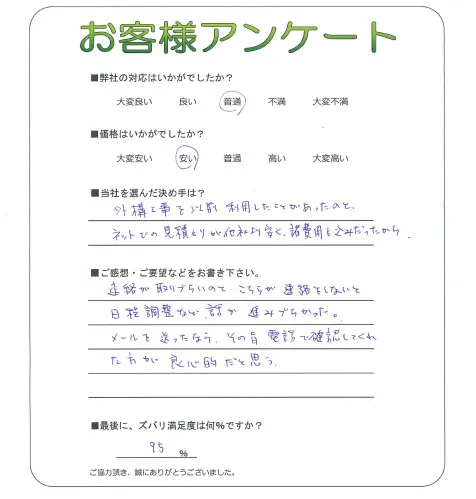 お客様アンケート
■弊社の対応はいかがでしたか？
大変良い 良い 普通 不満 大変不満
■価格はいかがでしたか？
大変安い 安い 普通 高い 大変高い
■当社を選んだ決め手は？
外構工事を以前利用したことがあったのと、
ネットでの見積もりが他社より安く、諸費用も込みだったから
■ご感想・ご要望などをお書き下さい。
連絡が取りづらいのと、こちらが連絡をしないと
日程調整など、話が進みづらかった。
メールを送ったなら、その旨、電話で確認してくれ
た方が良心的だと思う。
■最後に、ズバリ満足度は何％ですか？
95 ％
ご協力頂き、誠にありがとうございました。